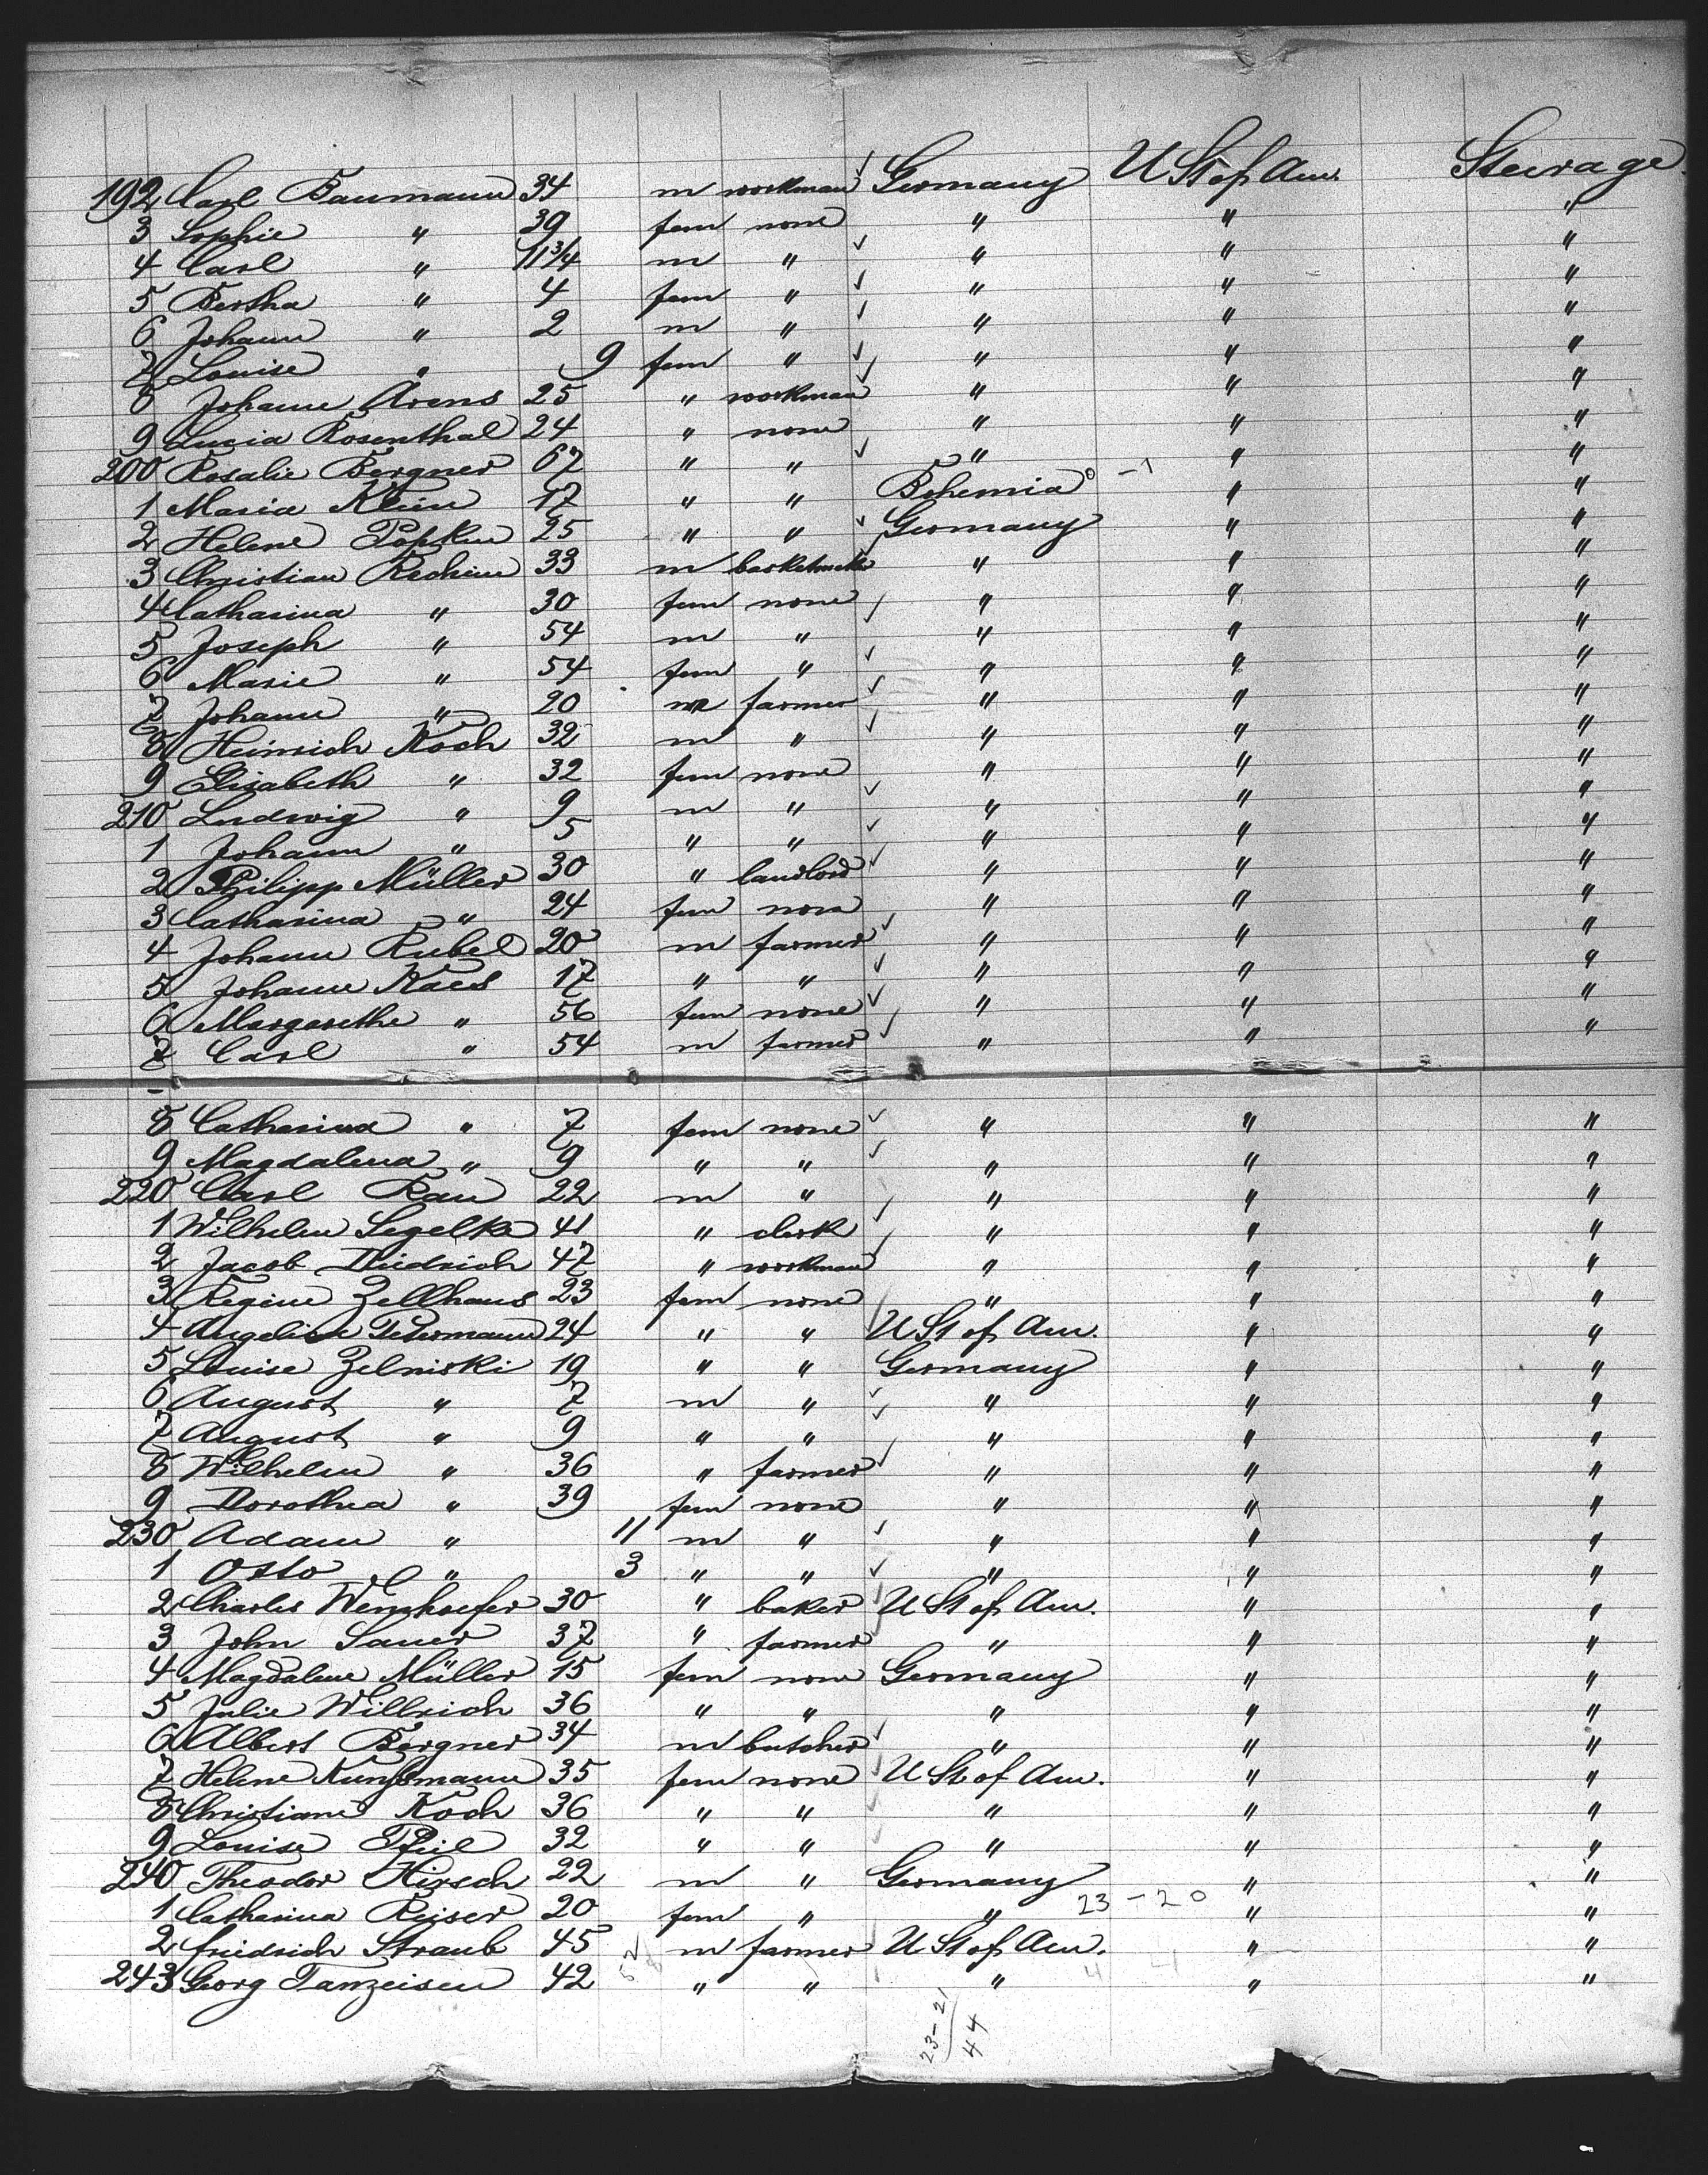 192 Carl Baumann 34 m workman Germany U St of Am. Steerage
3 Sophie " 39 fem none " " "
4 Carl " 11 3/4 m " " " "
5 Bertha " 4 fem " " " "
6 Johann " 2 m " " " "
7 Louise " 9 fem " " " "
8 Johann Arens 25 " workman " " "
9 Lucia Rosenthal 24 " none " " "
200 Rosalie Bergner 67 " " " " "
1 Maria Klein 17 " " Bohemia 0 -1 " "
2 Helene Popken 25 " " Germany " "
3 Christian Rechin 33 m basketmaker " " "
4 Catharina " 30 fem none " " "
5 Joseph " 54 m " " " "
6 Marie " 54 fem " " " "
7 Johann " 20 m farmer " " "
8 Heinrich Koch 32 m " " " "
9 Elisabeth " 32 fem none " " "
210 Ludwig " 9 m " " " "
1 Johann " 5 " " " " "
2 Philipp Müller 30 " landlord " " "
3 Catharina " 24 fem none " " "
4 Johann Rubel 20 m farmer " " "
5 Johann Kaes 17 " " " " "
6 Margarethe " 56 fem none " " "
7 Carl " 54 m farmer " " "
8 Catharina " 7 fem none " " "
9 Magdalena " 9 " " " " "
220 Carl Rau 22 m " " " "
1 Wilhelm Segelke 41 " clerk " " "
2 Jacob Diedrich 47 " workman " " "
3 Regine Zellhaus 23 fem none " " "
4 Angeline Petermann 24 " " U St of Am. " "
5 Louise Zelniski 19 " " Germany " "
6 August " 7 m " " " "
7 August " 9 " " " " "
8 Wilhelm " 36 " farmer " " "
9 Dorothea " 39 fem none " " "
230 Adam " 11 m " " " "
1 Otto " 3 " " " " "
2 Charles 30 " baker U St of Am. " "
3 John Sauer 37 " farmer " " "
4 Magdalene Müller 15 fem none Germany " "
5 Julie Willrich 36 " " " " "
6 Albert Bergner 34 m butcher " " "
7 Helene 35 fem none U St of Am. " "
8 Christiane Koch 36 " " " " "
9 Louise Pfeil 32 " " " " "
240 Theodor Hirsch 22 m " Germany " "
1 Catharina Reiser 20 fem " " 23 - 20 " "
2 Friedrich Straub 45 m farmer U St of Am. " "
243 Georg Tanzeisen 42 " " " 4 4 " "
23-21
44